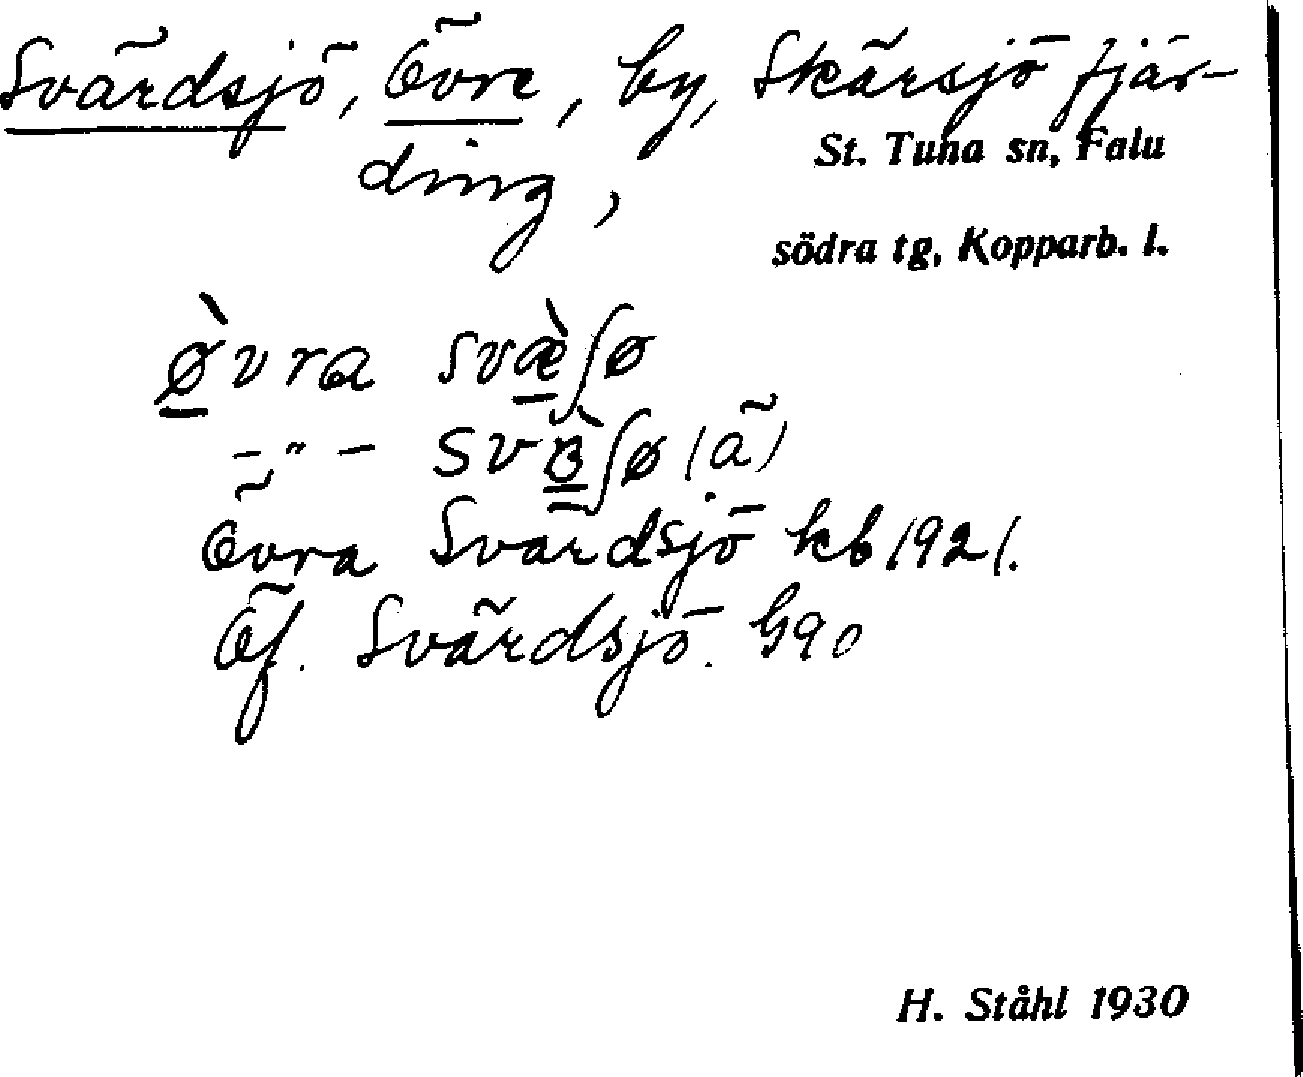 Svärdsjö, Övre, by, Skärsjö fjär-
St. Tuna sn, Falu
ding,
södra tg, Kopparb. l.
ø̀vra svæ̀ʃø
-„- svʙ̀ʃø (ä)
Övra Svärdsjö kb 1921.
Öf. Svärdsjö. G90
H. Ståhl 1930